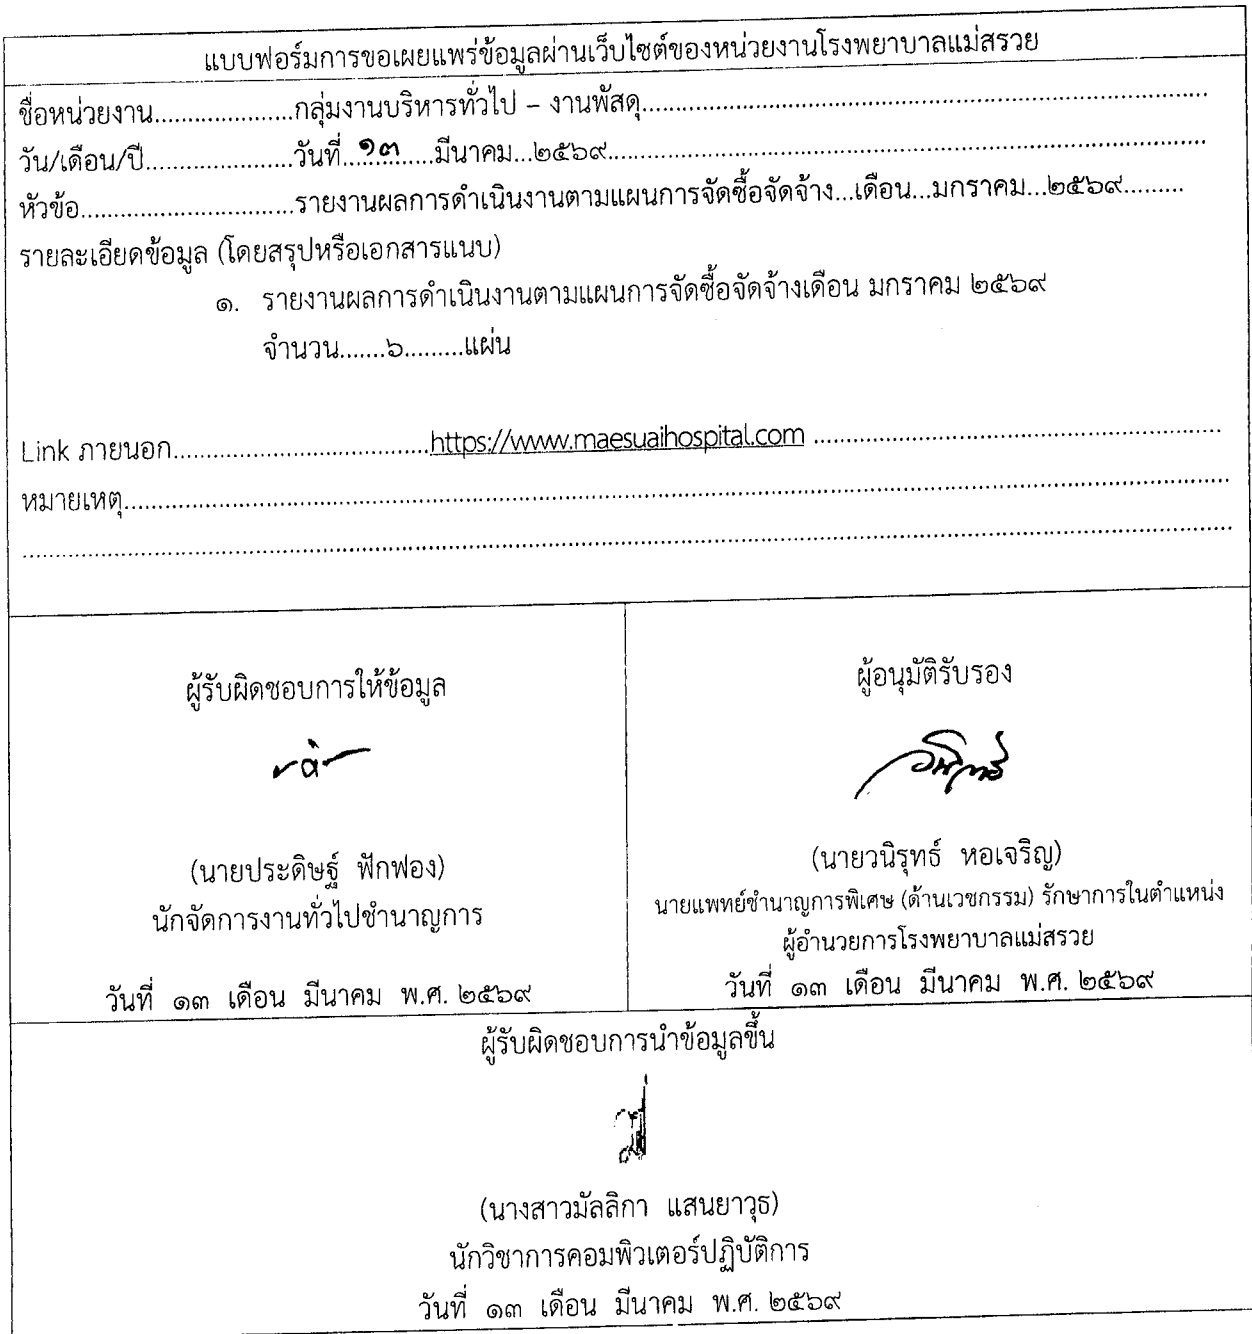 แบบฟอร์มการขอเผยแพร่ข้อมูลผ่านเว็บไซต์ของหน่วยงานโรงพยาบาลแม่สรวย
ชื่อหน่วยงาน.....................กลุ่มงานบริหารทั่วไป – งานพัสดุ.....................................................................................
วัน/เดือน/ปี......................วันที่..๑๓.....มีนาคม...๒๕๖๙..........................................................................................
หัวข้อ................................รายงานผลการดำเนินงานตามแผนการจัดซื้อจัดจ้าง...เดือน...มกราคม...๒๕๖๙.........
รายละเอียดข้อมูล (โดยสรุปหรือเอกสารแนบ)
๑. รายงานผลการดำเนินงานตามแผนการจัดซื้อจัดจ้างเดือน มกราคม ๒๕๖๙
จำนวน.......๖.........แผ่น
Link ภายนอก.......................................https://www.maesuaihospital.com .............................................................
หมายเหตุ.....................................................................................................................................................................
....................................................................................................................................................................................
ผู้รับผิดชอบการให้ข้อมูล
(นายประดิษฐ์ ฟักฟอง)
นักจัดการงานทั่วไปชำนาญการ
วันที่ ๑๓ เดือน มีนาคม พ.ศ. ๒๕๖๙
ผู้อนุมัติรับรอง
(นายวนิรุทธ์ หอเจริญ)
นายแพทย์ชำนาญการพิเศษ (ด้านเวชกรรม) รักษาการในตำแหน่ง
ผู้อำนวยการโรงพยาบาลแม่สรวย
วันที่ ๑๓ เดือน มีนาคม พ.ศ. ๒๕๖๙
ผู้รับผิดชอบการนำข้อมูลขึ้น
(นางสาวมัลลิกา แสนยาวุธ)
นักวิชาการคอมพิวเตอร์ปฏิบัติการ
วันที่ ๑๓ เดือน มีนาคม พ.ศ. ๒๕๖๙